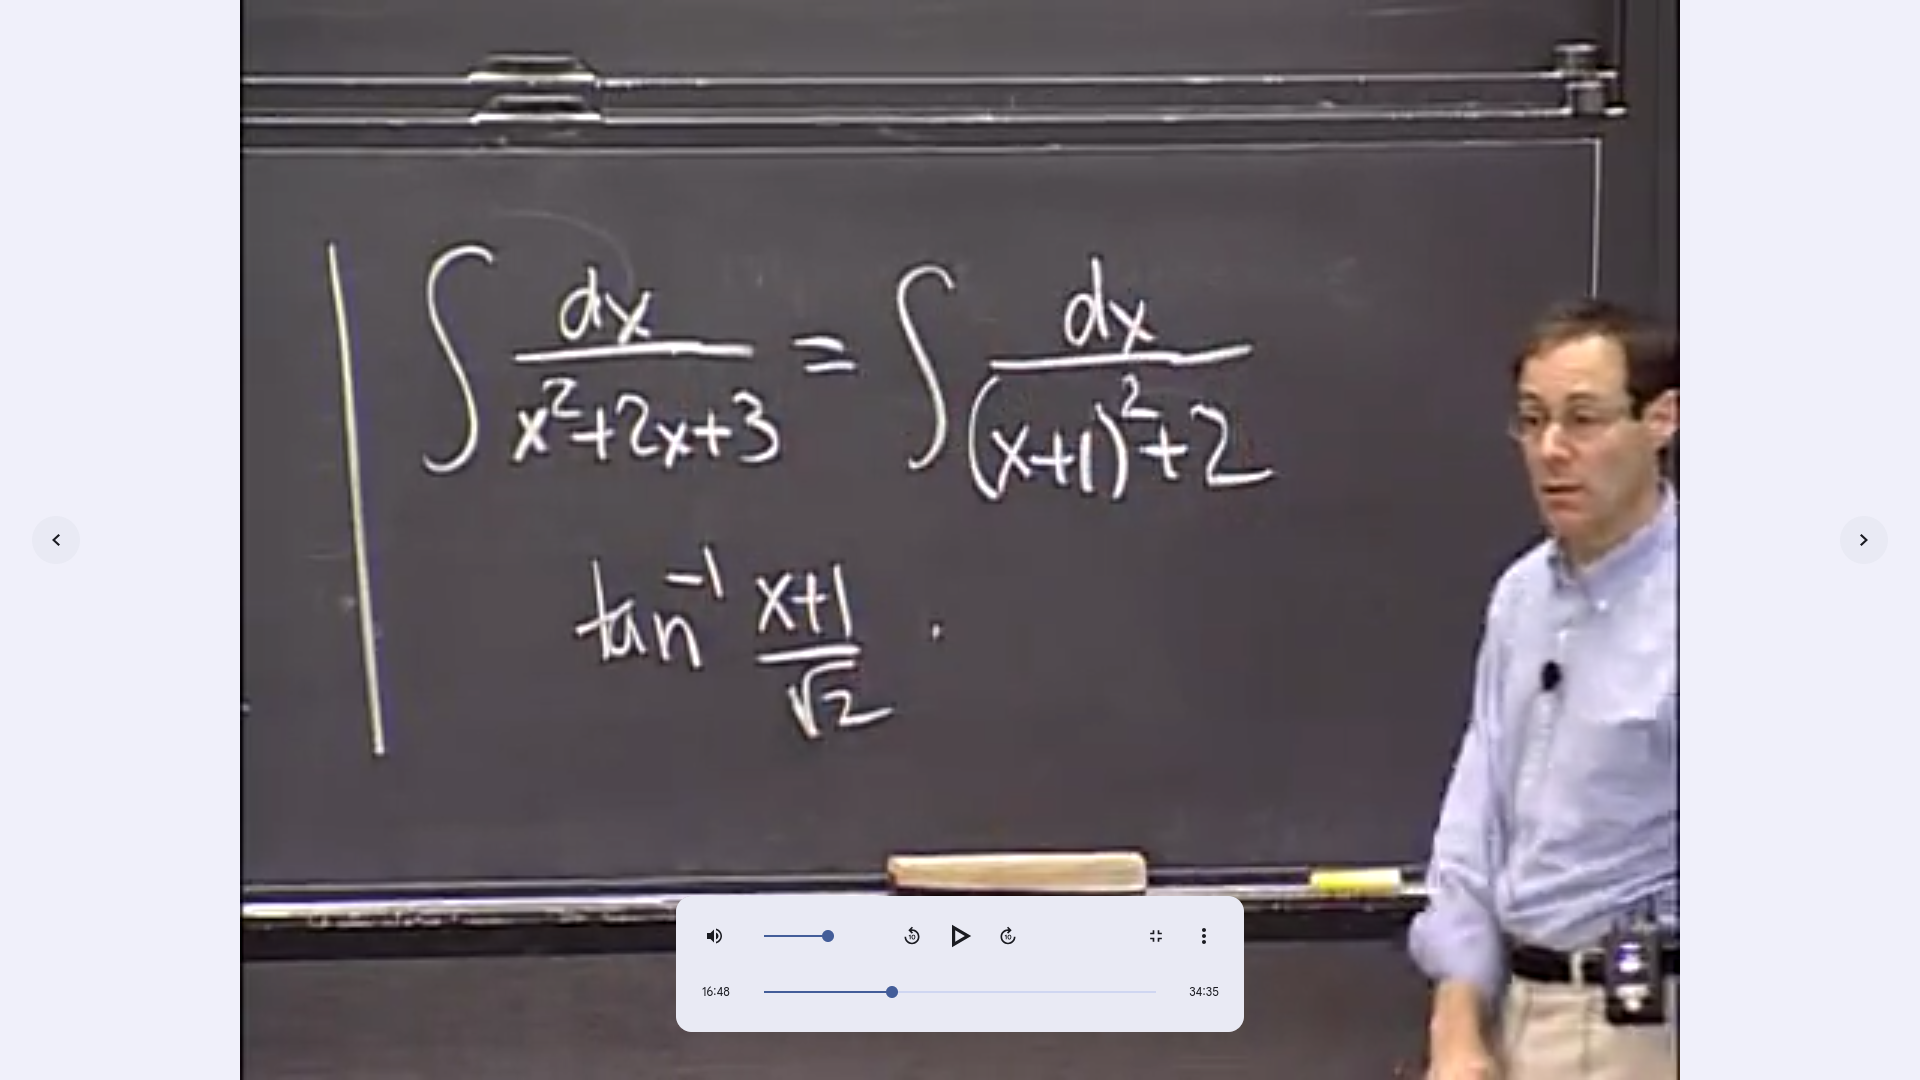 ∫ dx / x²+2x+3 = ∫ dx / (x+1)²+2
tan⁻¹ x+1 / √2 .
10
10
16:48
34:35